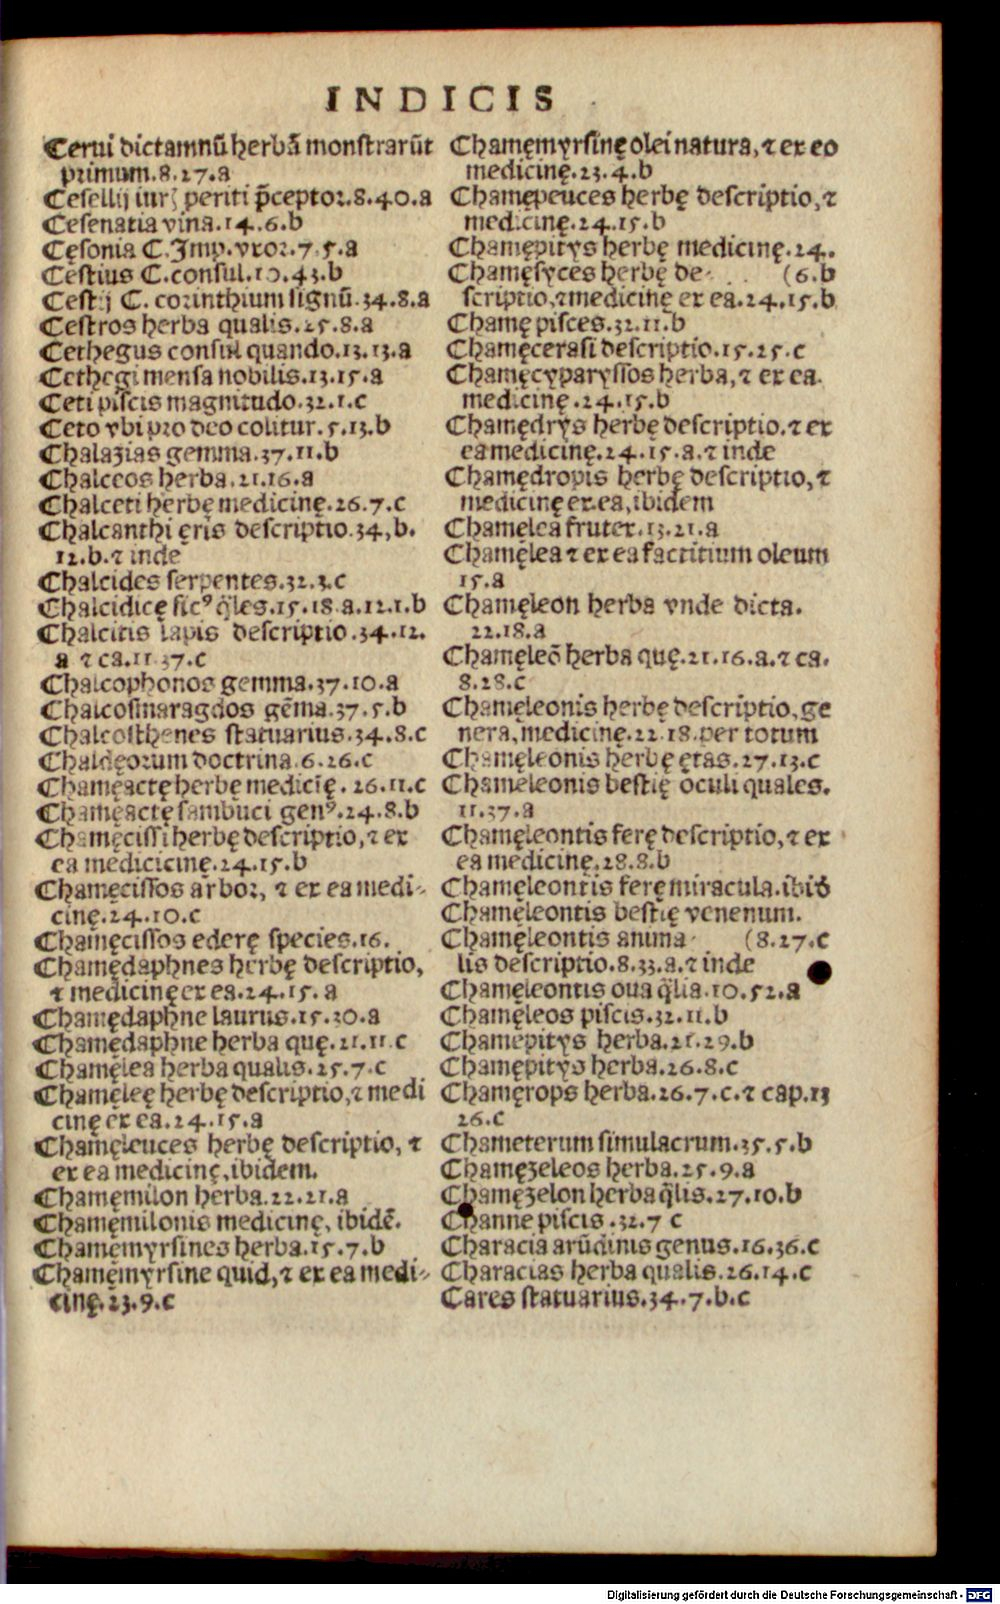 INDICIS
Cerui dictamnū herbā monstrarūt
primum.8.27.a
Cesellij iurꝫ periti p̄ceptor.8.40.a
Cesenatia vina.14.6.b
Cęsonia C.Imp.vxor.7.5.a
Cestius C.consul.10.43.b
Cestij C. corinthium signū.34.8.a
Cestros herba qualis.25.8.a
Cethegus consul quando.13.13.a
Cethegi mensa nobilis.13.15.a
Ceti piscis magnitudo.32.1.c
Ceto vbi pro deo colitur.5.13.b
Chalazias gemma.37.11.b
Chalceos herba.21.16.a
Chalceti herbę medicinę.26.7.c
Chalcanthi ęris descriptio.34,b.
12.b.⁊ inde
Chalcides serpentes.32.3.c
Chalcidicę ficꝰ q̄les.15.18.a.12.1.b
Chalcitis lapis descriptio.34.12.
a ⁊ ca.11.37.c
Chalcophonos gemma.37.10.a
Chalcosmaragdos gēma.37.5.b
Chalcosthenes statuarius.34.8.c
Chaldęorum doctrina.6.26.c
Chamęactę herbę medicię̄.26.11.c
Chamęactę sambuci genꝰ.24.8.b
Chamęcissi herbę descriptio,⁊ ex
ea medicicinę.24.15.b
Chamęcissos arbor, ⁊ ex ea medi-
cinę.24.10.c
Chamęcissos ederę species.16.
Chamędaphnes herbę descriptio,
⁊ medicinę ex ea.24.15.a
Chamędaphne laurus.15.30.a
Chamędaphne herba quę.21.11.c
Chamęlea herba qualis.25.7.c
Chamęleę herbę descriptio,⁊ medi
cinę ex ea.24.15.a
Chamęleuces herbę descriptio, ⁊
ex ea medicinę,ibidem.
Chamęmilon herba.22.21.a
Chamęmilonis medicinę, ibidē.
Chamęmyrsines herba.15.7.b
Chamęmyrsine quid,⁊ ex ea medi-
cinę.23.9.c
Chamęmyrsinę olei natura,⁊ ex eo
medicinę.23.4.b
Chamępeuces herbę descriptio,⁊
medicinę.24.15.b
Chamępitys herbę medicinę.24.
Chamęsyces herbę de- (6.b
scriptio,⁊medicinę ex ea.24.15.b
Chamę pisces.32.11.b
Chamęcerasi descriptio.15.25.c
Chamęcyparyssos herba,⁊ ex ea
medicinę.24.15.b
Chamędrys herbę descriptio.⁊ ex
ea medicinę.24.15.a.⁊ inde
Chamędropis herbę descriptio,⁊
medicinę ex.ea,ibidem
Chamęlea frutex.13.21.a
Chamęlea ⁊ ex ea factitium oleum
15.a
Chamęleon herba vnde dicta.
22.18.a
Chamęleō herba quę.21.16.a.⁊ ca.
8.28.c
Chamęleonis herbę descriptio,ge
nera,medicinę.22.18.per totum
Chamęleonis herbę ętas.27.13.c
Chamęleonis bestię oculi quales.
11.37.a
Chamęleontis ferę descriptio,⁊ ex
ea medicinę.28.8.b
Chamęleontis ferę miracula.ibid
Chamęleontis bestię venenum.
Chamęleontis anima- (8.27.c
lis descriptio.8.33.a.⁊ inde
Chamęleontis oua q̄lia.10.52.a
Chamęleos piscis.32.11.b
Chamępitys herba.21.29.b
Chamępitys herba.26.8.c
Chamęrops herba.26.7.c.⁊ cap.13
26.c
Chameterum simulacrum.35.5.b
Chamęzeleos herba.25.9.a
Chamęzelon herba q̄lis.27.10.b
Channe piscis.32.7 c
Characia arūdinis genus.16.36.c
Characias herba qualis.26.14.c
Cares statuarius.34.7.b.c
Digitalisierung gefördert durch die Deutsche Forschungsgemeinschaft - DFG